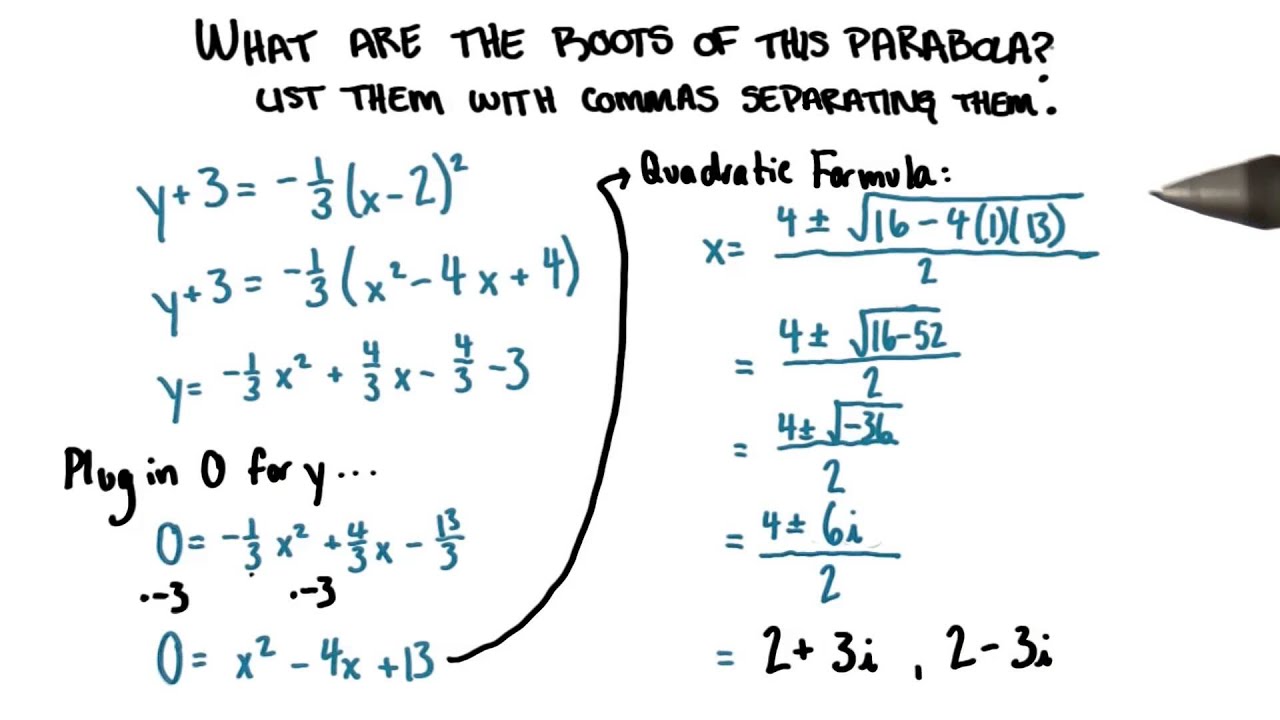 WHAT ARE THE ROOTS OF THIS PARABOLA?
LIST THEM WITH COMMAS SEPARATING THEM.
y+3 = -1/3(x-2)²
y+3 = -1/3(x²-4x+4)
y= -1/3x² + 4/3x - 4/3 -3
Plug in 0 for y...
0= -1/3x² + 4/3x - 13/3
·-3 ·-3
0= x² - 4x +13
Quadratic Formula:
x= (4 ± √(16-4(1)(13)))/2
= (4 ± √(16-52))/2
= (4 ± √(-36))/2
= (4 ± 6i)/2
= 2+3i , 2-3i